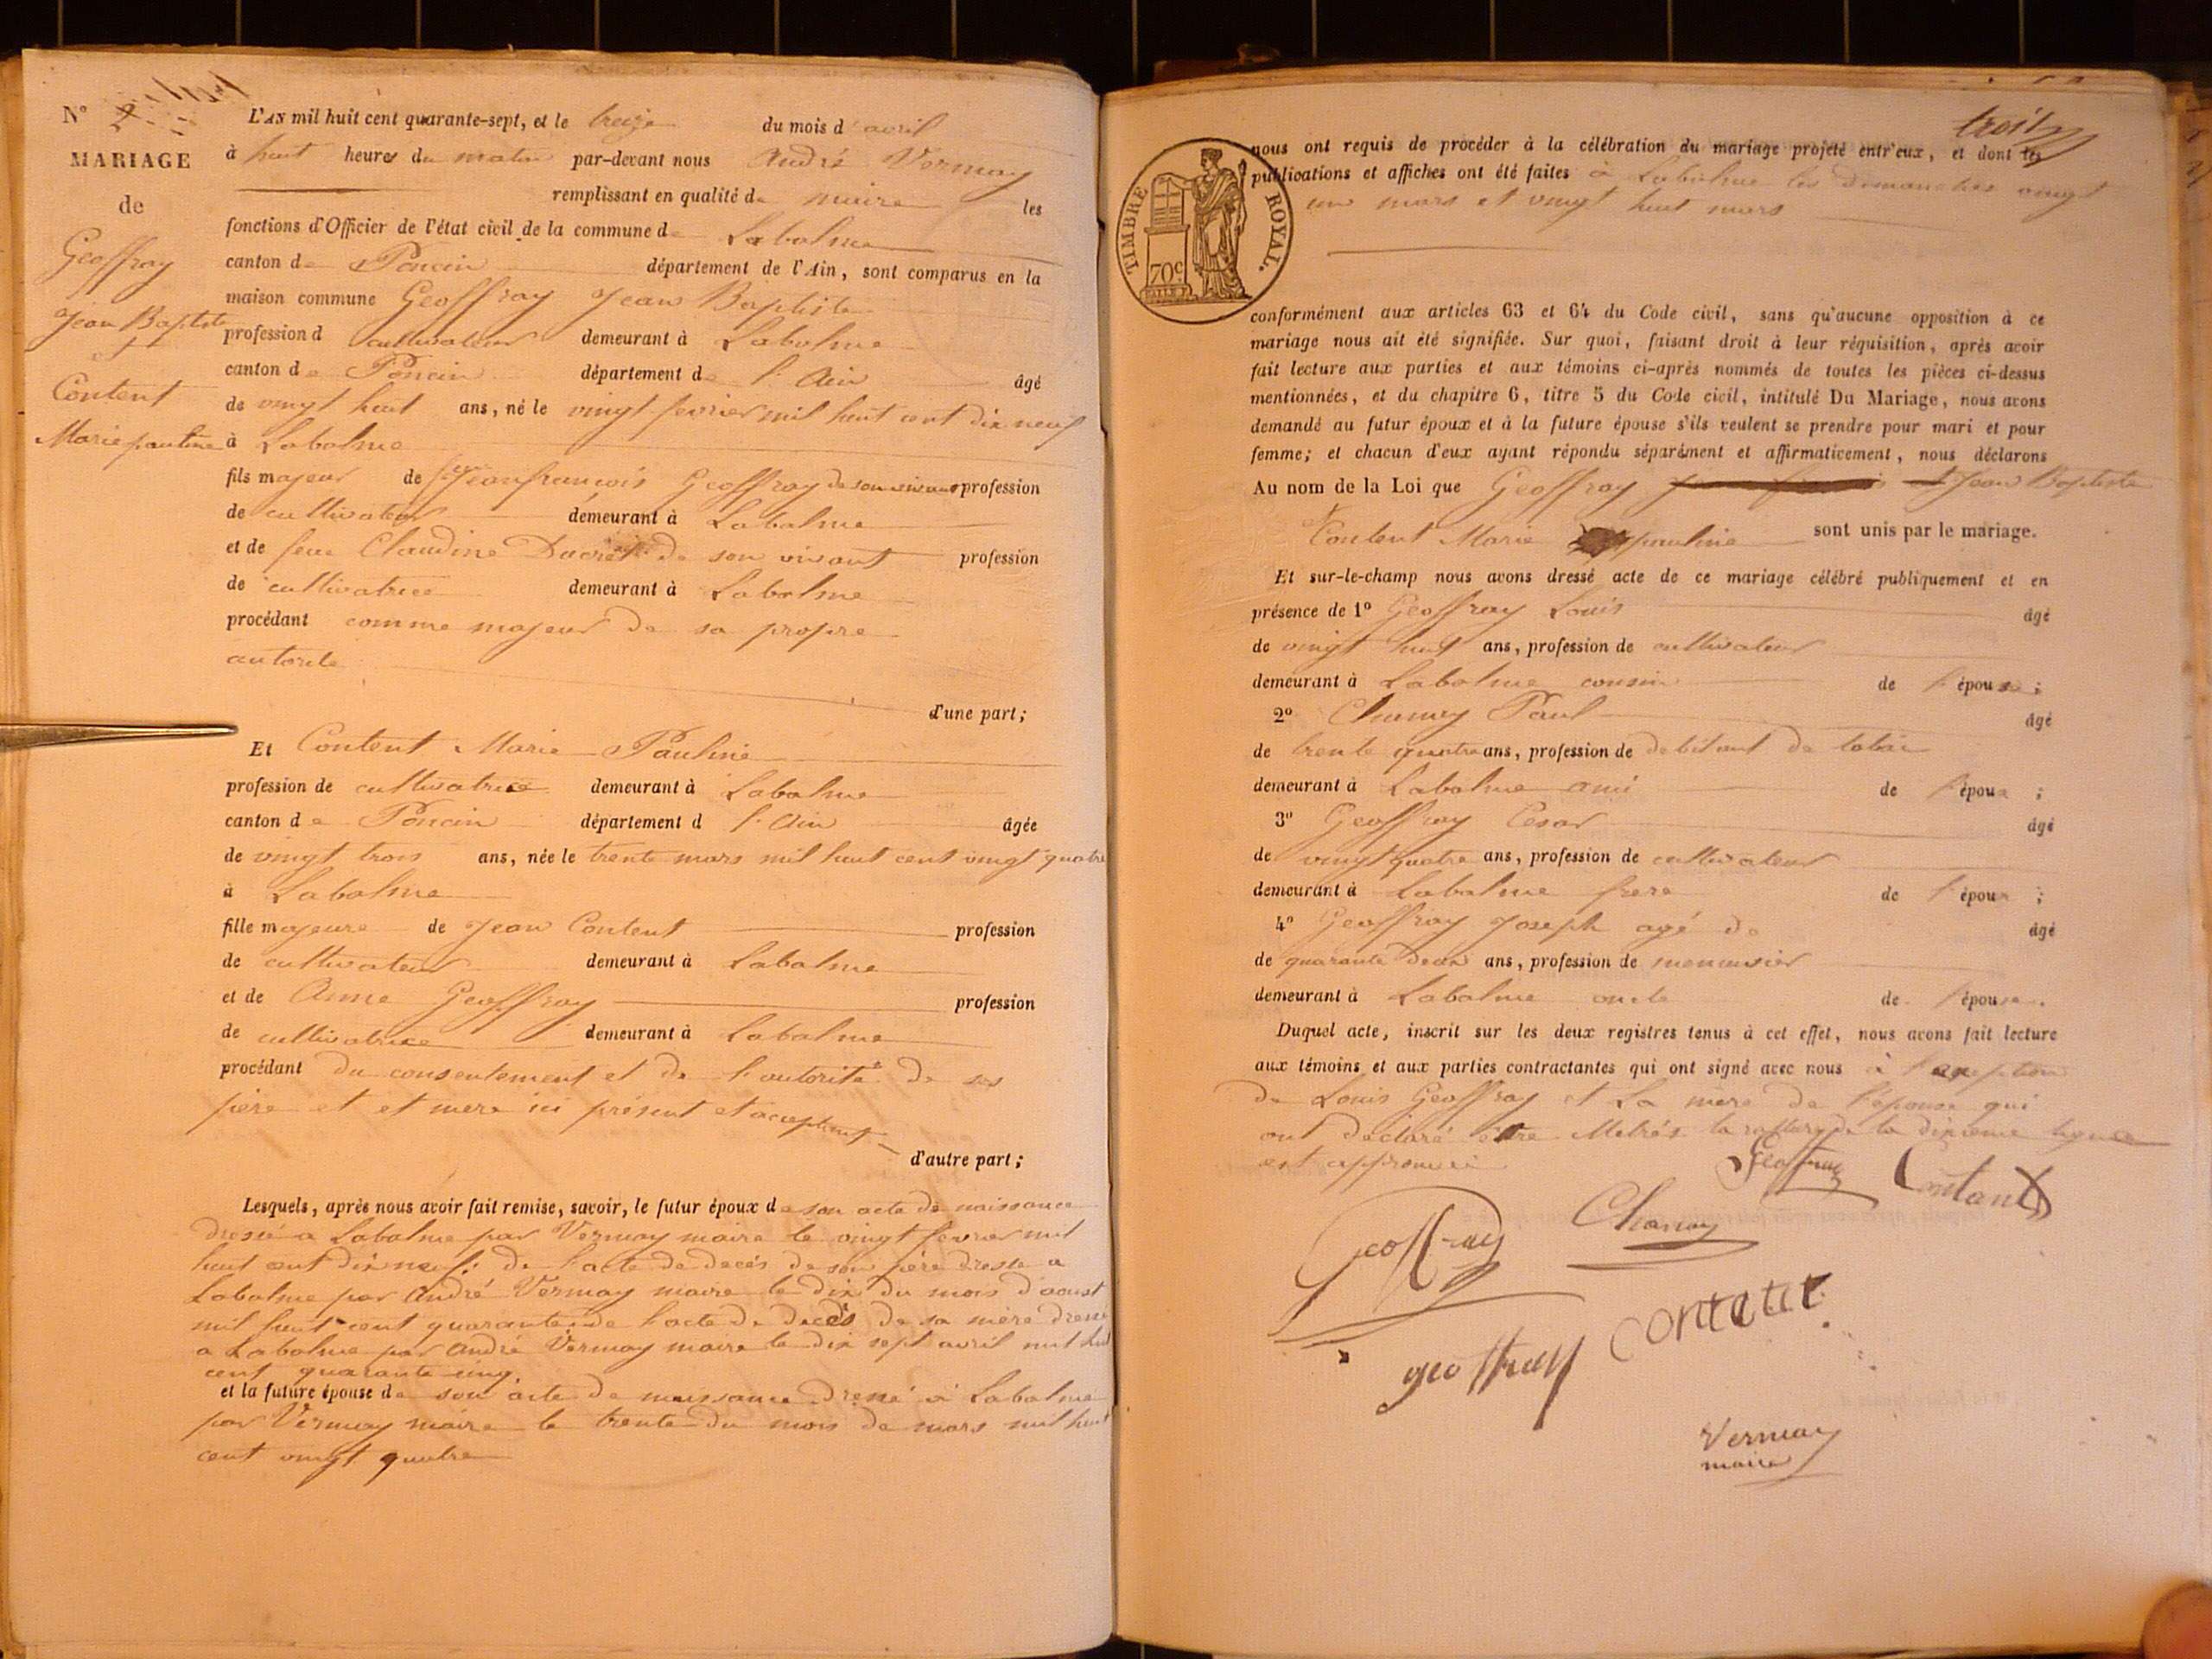 N° 2
MARIAGE
de
Geoffray
Jean Baptiste
et
Content
Marie pauline
L'AN mil huit cent quarante-sept, et le treize du mois d'avril
à huit heures du matin par-devant nous André Vernay
remplissant en qualité de maire les
fonctions d'Officier de l'état civil de la commune de Labalme
canton de Poncin département de l'Ain, sont comparus en la
maison commune Geoffray Jean Baptiste
profession d cultivateur demeurant à Labalme
canton de Poncin département de l'Ain âgé
de vingt huit ans, né le vingt fevrier mil huit cent dix neuf
à Labalme
fils majeur de feu Jean francois Geoffray de son vivant profession
de cultivateur demeurant à Labalme
et de feue Claudine Ducret de son vivant profession
de cultivatrice demeurant à Labalme
procédant comme majeur de sa propre
autorité
d'une part;
Et Content Marie Pauline
profession de cultivatrice demeurant à Labalme
canton de Poncin département d l'Ain âgée
de vingt trois ans, née le trente mars mil huit cent vingt quatre
à Labalme
fille majeure de Jean Content profession
de cultivateur demeurant à Labalme
et de Anne Geoffray profession
de cultivatrice demeurant à Labalme
procédant du consentement et de l'autorité de ses
père et et mere ici présent et acceptant
d'autre part;
Lesquels, après nous avoir fait remise, savoir, le futur époux de son acte de naissance
dressé a Labalme par Vernay maire le vingt fevrier mil
huit cent dix neuf; de l'acte de decés de son père dressé a
Labalme par André Vernay maire le dix du mois d'aoust
mil huit cent quarante de l'acte de decès de sa mère dressé
a Labalme par André Vernay maire le dix sept avril mil huit
cent quarante cinq.
et la future épouse de son acte de naissance dressé à Labalme
par Vernay maire le trente du mois de mars mil huit
cent vingt quatre
trois
nous ont requis de procéder à la célébration du mariage projeté entr'eux, et dont les
publications et affiches ont été faites à Labalme les dimanches vingt
un mars et vingt huit mars
TIMBRE ROYAL.
70c
conformément aux articles 63 et 64 du Code civil, sans qu'aucune opposition à ce
mariage nous ait été signifiée. Sur quoi, faisant droit à leur réquisition, après avoir
fait lecture aux parties et aux témoins ci-après nommés de toutes les pièces ci-dessus
mentionnées, et du chapitre 6, titre 5 du Code civil, intitulé Du Mariage, nous avons
demandé au futur époux et à la future épouse s'ils veulent se prendre pour mari et pour
femme; et chacun d'eux ayant répondu séparément et affirmativement, nous déclarons
Au nom de la Loi que Geoffray Jean Baptiste
Content Marie pauline sont unis par le mariage.
Et sur-le-champ nous avons dressé acte de ce mariage célébré publiquement et en
présence de 1° Geoffray Louis âgé
de vingt huit ans, profession de cultivateur
demeurant à Labalme cousin de l'épouse;
2° Chanay Paul âgé
de trente quatre ans, profession de debitant de tabac
demeurant à Labalme ami de l'époux;
3° Geoffray Cesar âgé
de vingt quatre ans, profession de cultivateur
demeurant à Labalme frere de l'époux;
4° Geoffray Joseph agé de âgé
de quarante deux ans, profession de menuisier
demeurant à Labalme oncle de l'épouse.
Duquel acte, inscrit sur les deux registres tenus à cet effet, nous avons fait lecture
aux témoins et aux parties contractantes qui ont signé avec nous à l'exeption
de Louis Geoffray et La mere de l'épouse qui
ont déclaré être illetrés la de la dixieme ligne
est approuvé
Geoffray Contant
Geoffray Chanay
geoffray content
Vernay
maire